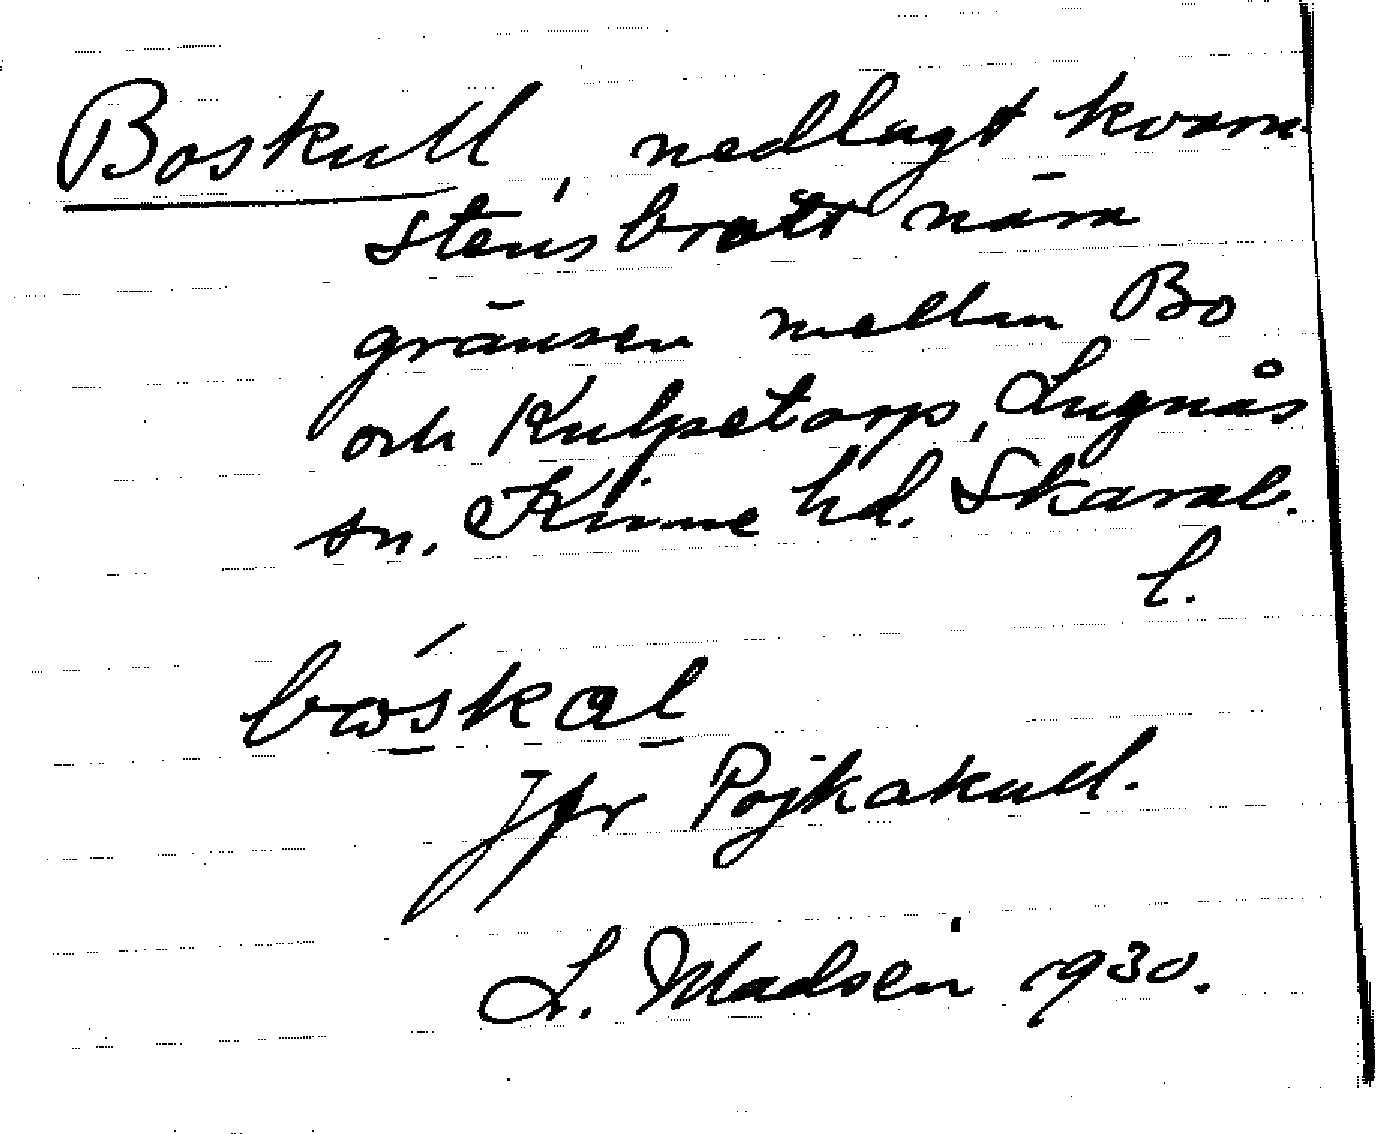 Boskull, nedlagt kvarn
stensbrott nära
gränsen mellan Bo
och Kulpetorp, Lugnås
sn. Kinne hd. Skarab.
l.
Jfr Pojkakull.
L. Madsén 1930.